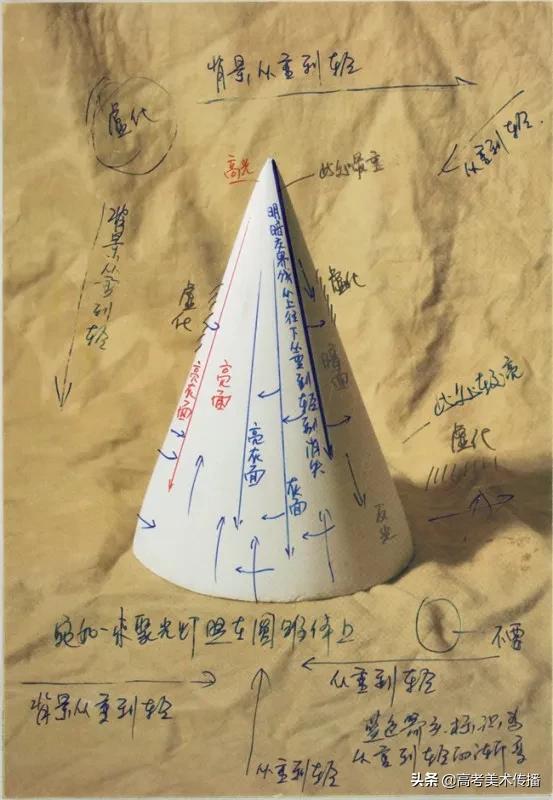 背景从重到轻
虚化
从重到轻.
高光
此处最重
背景从重到轻
明暗交界线从上往下从重到轻到消失
虚化
虚化
亮灰面
亮面
暗面
此处较亮
虚化
亮灰面
灰面
反光
宛如一束聚光灯照在圆锥体上
不要
背景从重到轻
从重到轻
从重到轻
蓝色箭头标识为
从重到轻的渐变
头条 @高考美术传播